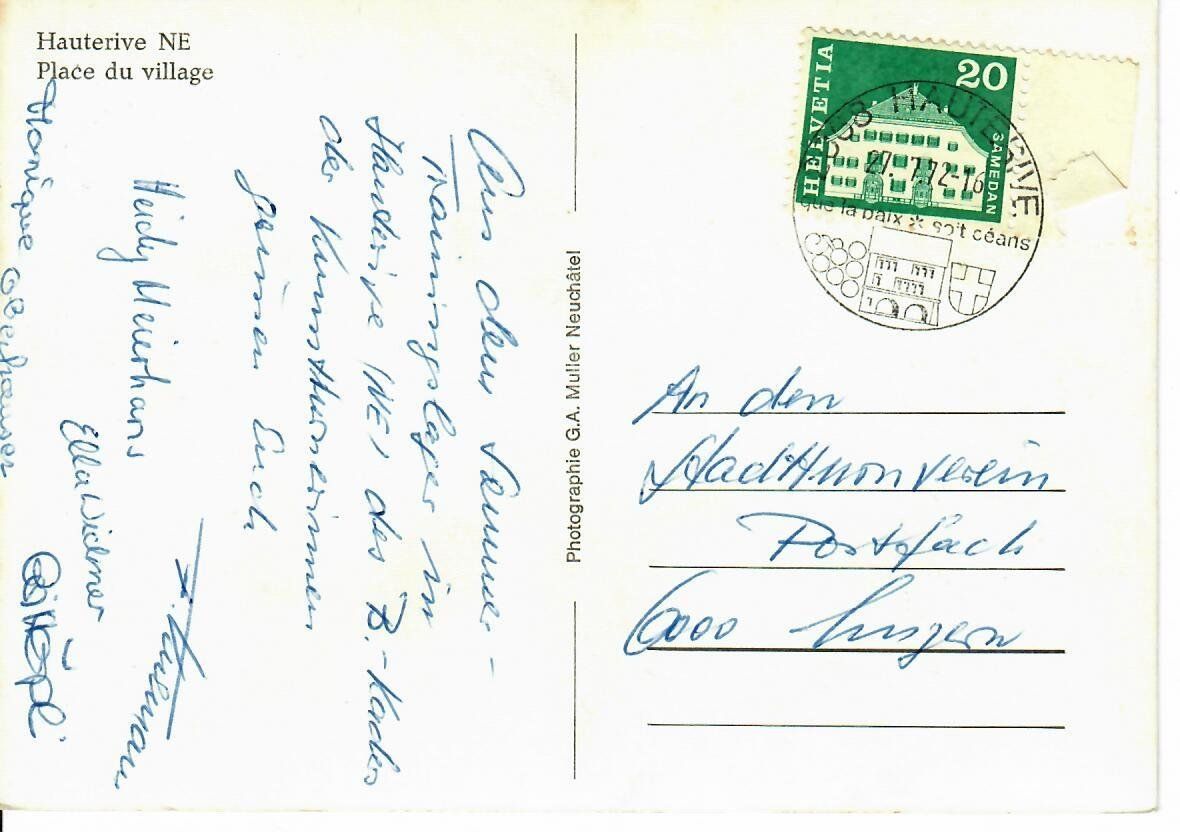 Hauterive NE
Place du village
Aus dem Sommer-
Trainingslager in
Hauterive (NE) des B.-Kader
der Kunstturnerinnen
grüssen Euch
Heidy Meierhans
Monique Oberhauser
Ella Widmer
Photographie G.A. Muller Neuchâtel
HELVETIA
20
SAMEDAN
HAUTERIVE
27.7.72-16
que la paix * soit céans
An den
Stadtturnverein
Postfach
6000 Luzern